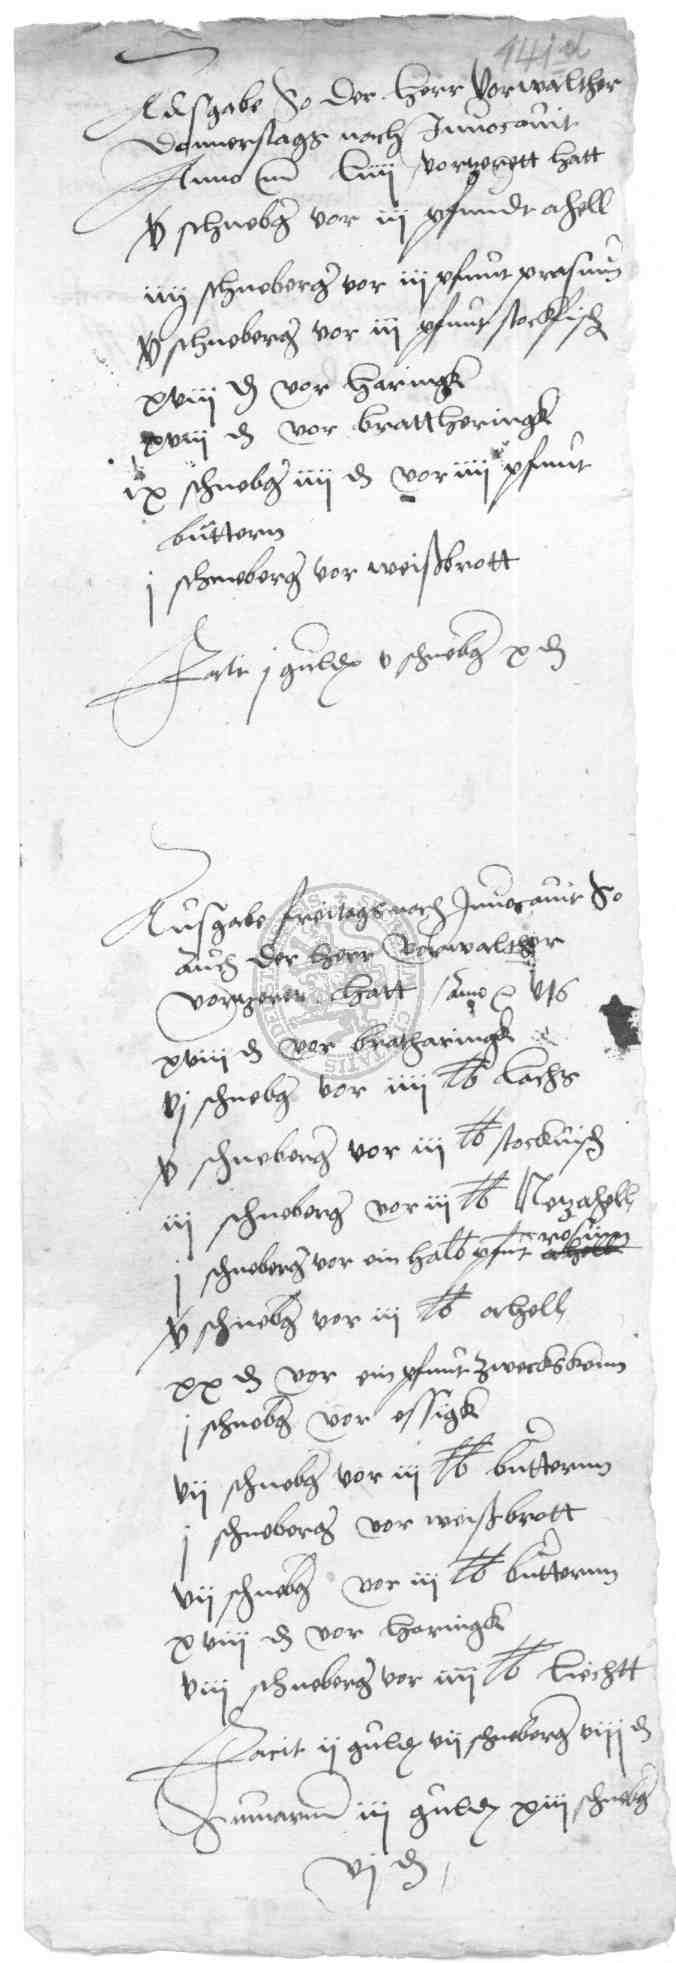 141
Ausgabe So der herr Vorwalther
Donnerstags nach Inuocauit
Anno liiij vorzerett hatt
v schnebg vor iij pfundt ahell
iiij schneberg vor iij pfunt prasmn
v schneberg vor iij pfunt stockfisch
xviii d vor haringk
xviii d vor brattheringk
ix schnebg iiii d vor iiii pfunt
buttern
j schneberg vor weißbrott
Facit j guld v schnebg x d
Ausgabe freitags nach Inuocauit So
auch der herr Vorwalther
vorzerer hatt Anno
xviii d vor bratharingk
vj schnebg vor iiii lb lachs
v schneberg vor iii lb stockuisch
iii schneberg vor iii lb ahell
j schneberg vor ein halb pfut rosinn
v schnebg vor iii lb ahell
xx d vor ein pfunt zwecksken
j schnebg vor essigk
vij schnebg vor iij lb butternn
j schneberg vor weißbrott
vij schnebg vor iii lb butternn
xviii d vor haringk
viii schneberg vor iiii lb liechtt
Facit ij guld vij schneberg viij d
Sumarum iii guld xiii schnebg
vj d